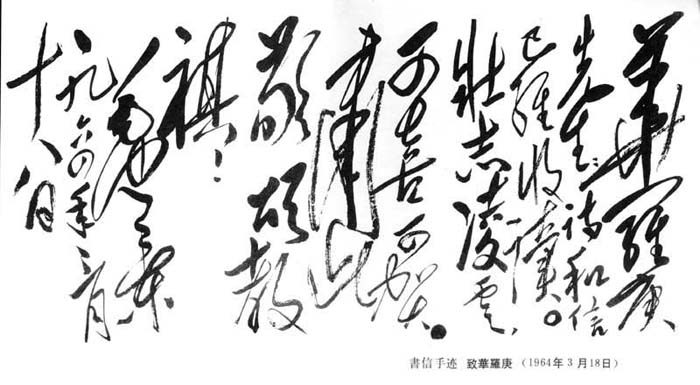 華羅庚
先生：詩和信
已經收讀。
壮志凌雲，
可喜可賀。
肅此
敬頌教
祺！
毛澤東
一九六四年三月
十八日
書信手迹 致華羅庚 （1964年3月18日）